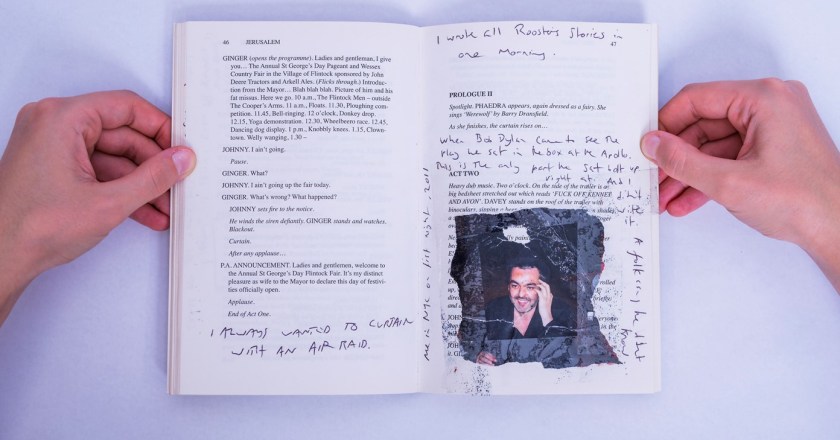 46 JERUSALEM
GINGER (opens the programme). Ladies and gentlemen, I give
you… The Annual St George's Day Pageant and Wessex
Country Fair in the Village of Flintock sponsored by John
Deere Tractors and Arkell Ales. (Flicks through.) Introduc-
tion from the Mayor… Blah blah blah. Picture of him and his
fat missus. Here we go. 10 a.m., The Flintock Men – outside
The Cooper's Arms. 11 a.m., Floats. 11.30, Ploughing com-
petition. 11.45, Bell-ringing. 12 o'clock, Donkey drop.
12.15, Yoga demonstration. 12.30, Wheelbeero race. 12.45,
Dancing dog display. 1 p.m., Knobbly knees. 1.15, Clown-
town. Welly wanging, 1.30 –
JOHNNY. I ain't going.
Pause.
GINGER. What?
JOHNNY. I ain't going up the fair today.
GINGER. What's wrong? What happened?
JOHNNY sets fire to the notice.
He winds the siren defiantly. GINGER stands and watches.
Blackout.
Curtain.
After any applause…
P.A. ANNOUNCEMENT. Ladies and gentlemen, welcome to
the Annual St George's Day Flintock Fair. It's my distinct
pleasure as wife to the Mayor to declare this day of festivi-
ties officially open.
Applause.
End of Act One.
I ALWAYS WANTED TO CURTAIN
WITH AN AIR RAID.
I wrote all Rooster's Stories in
one morning.
47
PROLOGUE II
Spotlight. PHAEDRA appears, again dressed as a fairy. She
sings 'Werewolf' by Barry Dransfield.
As she finishes, the curtain rises on…
When Bob Dylan came to see the
play he sat in the box at the Apollo.
This is the only part he sat bolt up
right at. And I
didn't
write
it.
A folk song he didn't
know
ACT TWO
Heavy dub music. Two o'clock. On the side of the trailer is a
big bedsheet stretched out which reads 'FUCK OFF KENNET
AND AVON'. DAVEY stands on the roof of the trailer with
binoculars,
Me in NYC on first night, 2011